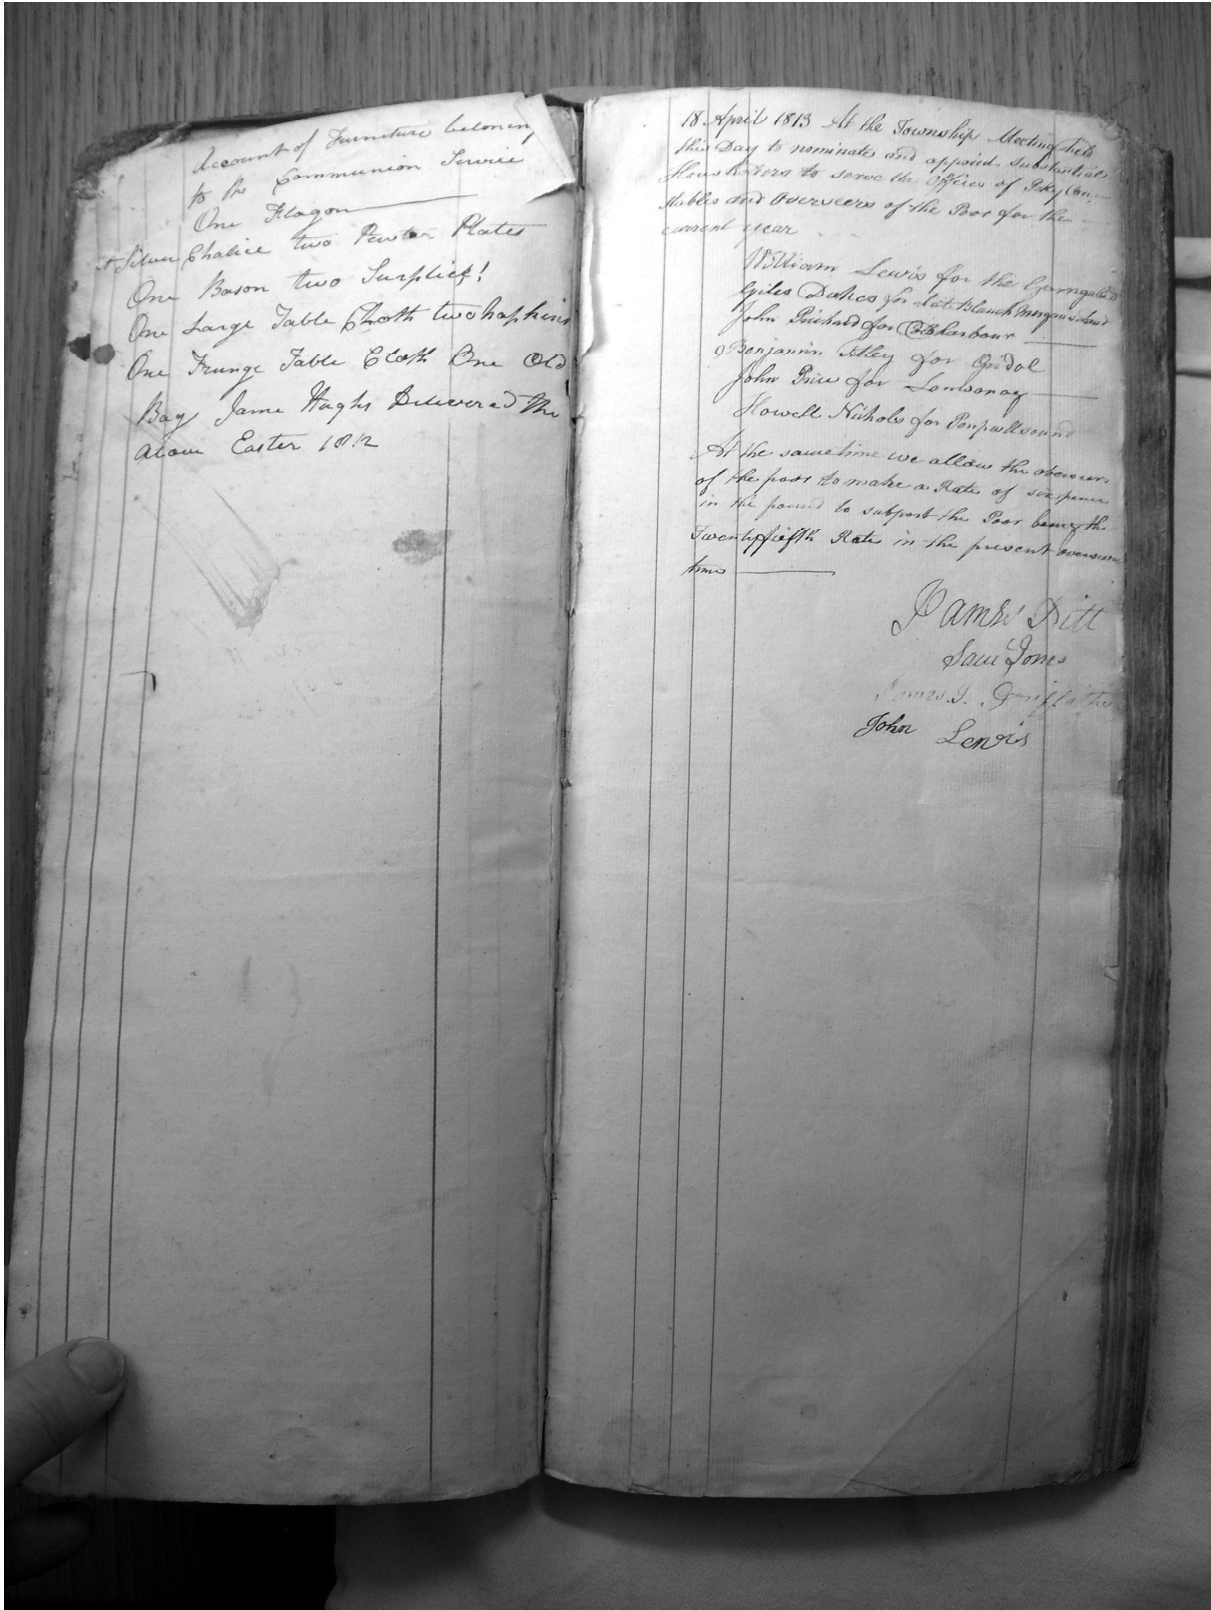 Account of Furniture belonin
to the Communion Servic
One Flagon
A Silver Chalice two Pewter Plates
One Bason two Surplics!
One Large Table Cloth two napkins
One Frunge Table Cloth One Old
Bag Jame Hughs Delivered the
above Easter 1812
18 April 1813 At the Township Meeting held
this Day to nominate and appoint substantial
Housholders to serve the Offices of Petty Con-
stables and Overseers of the Poor for the
current year
William Lewis for the
Giles Dukes for late Blanch Morgans Land
John Prichard for Coldharbour
Benjamin for
John Price for
Howell Nichols for
At the same time we allow the overseers
of the poor to make a Rate of sixpence
in the pound to support the Poor being the
Twentyfiefth Rate in the present overseers
time
James Pitt
Saml Jones
James J. Griffiths
John Lewis